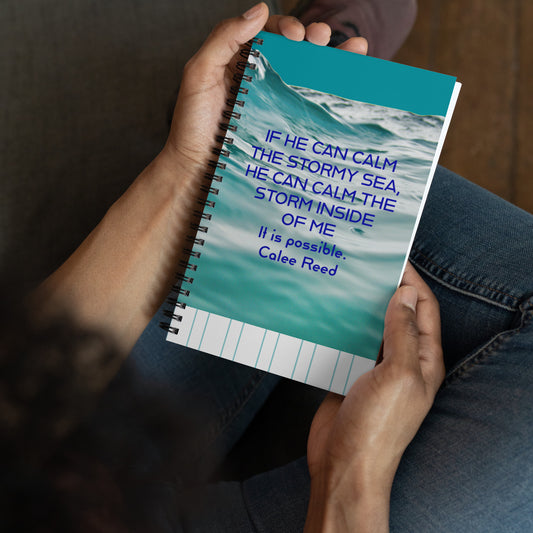 IF HE CAN CALM
THE STORMY SEA,
HE CAN CALM THE
STORM INSIDE
OF ME
It is possible.
Calee Reed